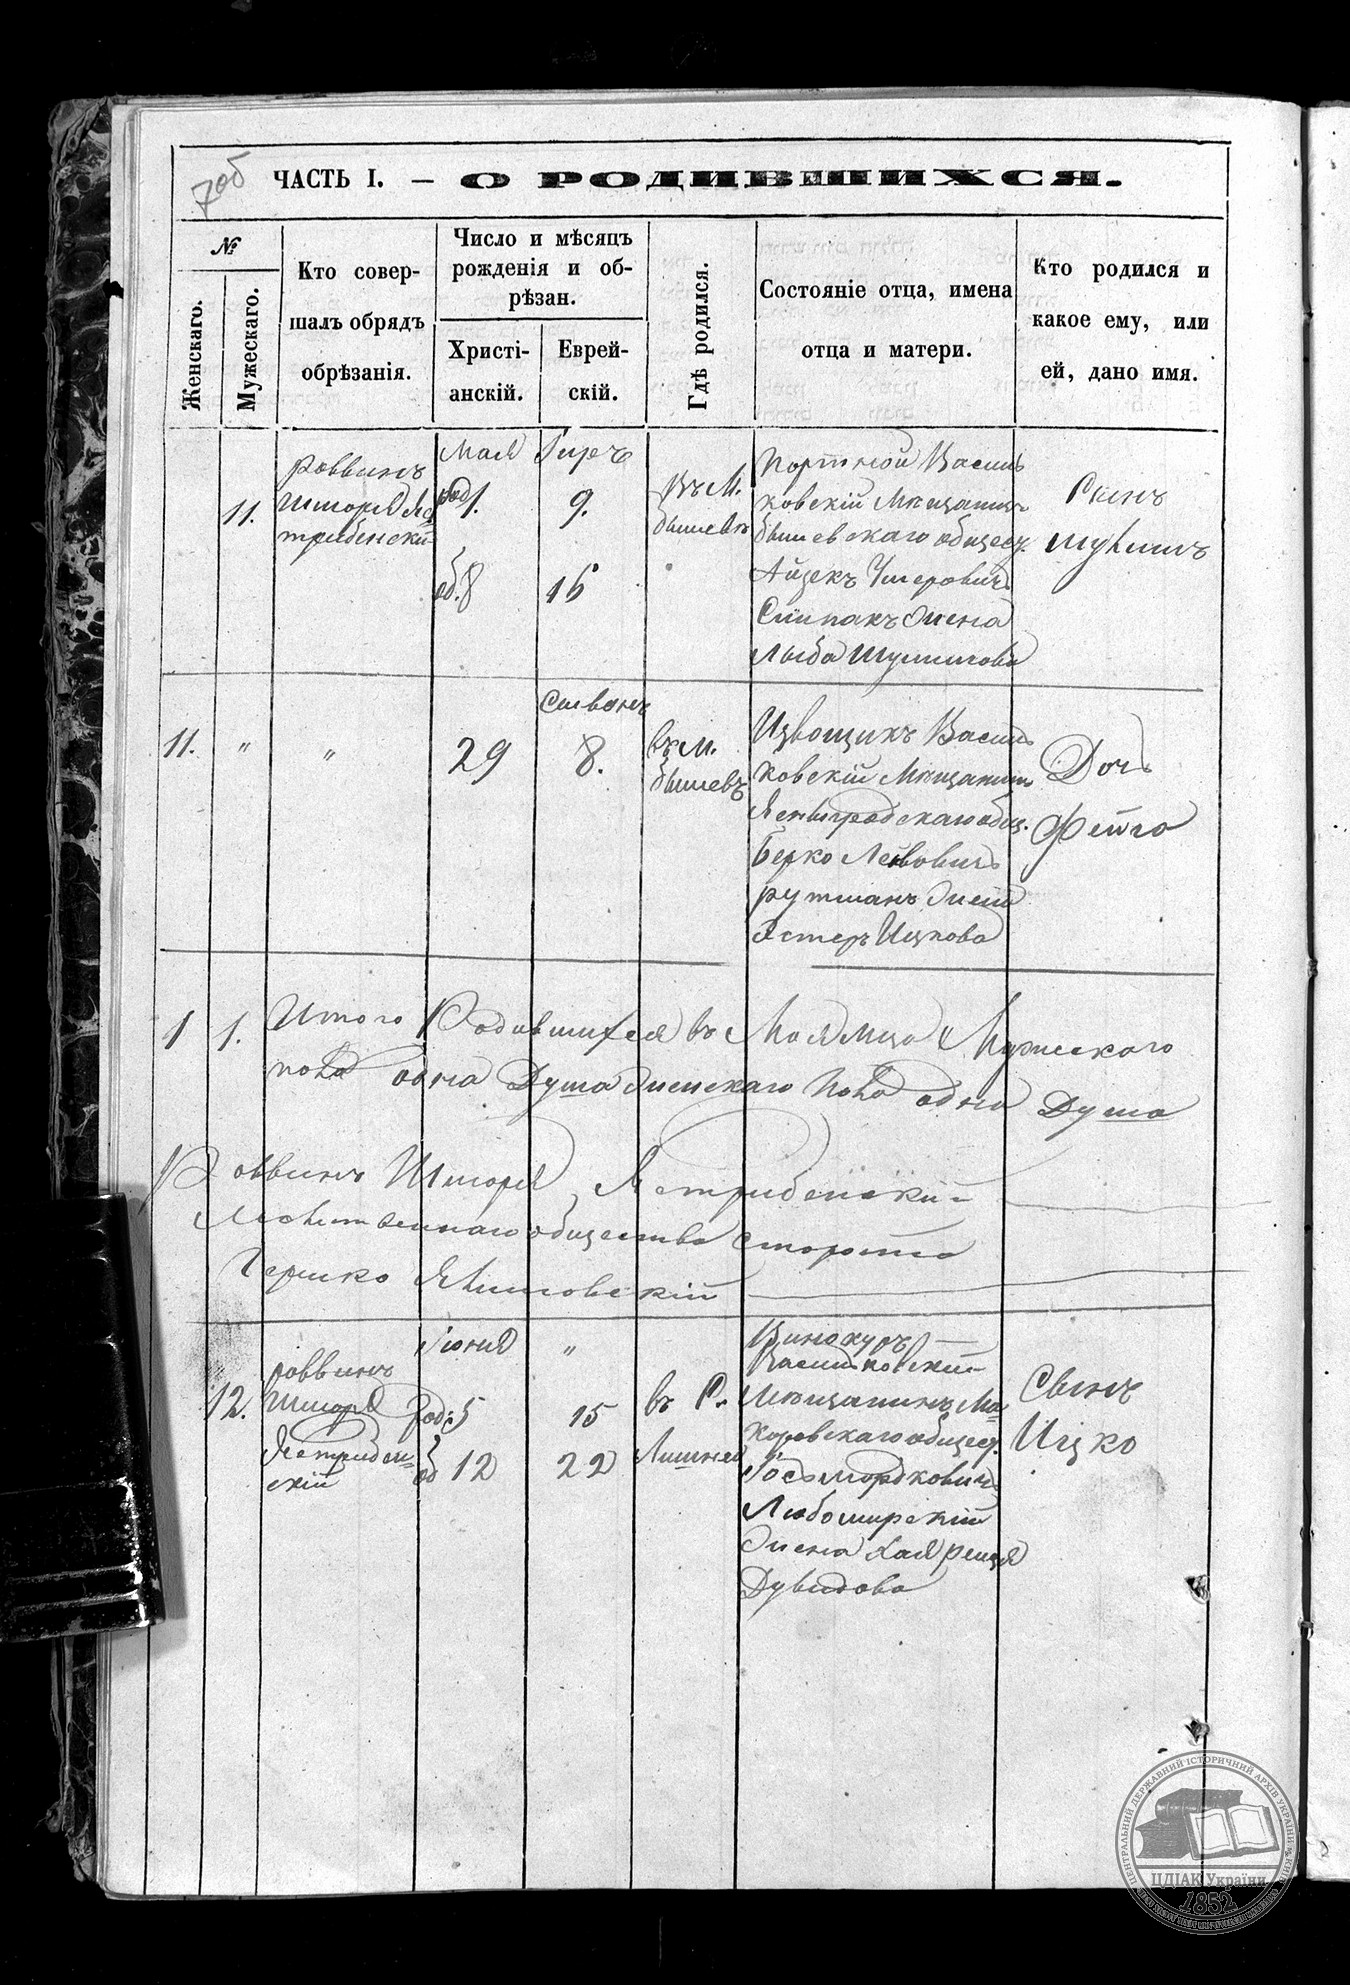 7об
ЧАСТЬ I. — О РОДИВШИХСЯ.
№
Женскаго.
Мужескаго.
Кто совер-
шалъ обрядъ
обрѣзанія.
Число и мѣсяцъ
рожденія и об-
рѣзан.
Христі-
анскій.
Еврей-
скій.
Гдѣ родился.
Состояніе отца, имена
отца и матери.
Кто родился и
какое ему, или
ей, дано имя.
11.
раввинъ
Шморія Яс
трибенскій
Мая
род 1.
об. 8
Іиръ
9.
16
въ М.
Бышевѣ
Портной Василь
ковскій Мѣщанинъ
Бышевскаго общест.
Айзекъ Умеровичъ
Спипакъ жена
Лыба Шулимова
Сынъ
Шулимъ
11.
"
"
29
Сиванъ
8.
въ М.
Бышевѣ
Извощикъ Василь
ковскій Мѣщанинъ
общ.
Берко Лейбовичъ
рутманъ жена
Эстеръ Ицкова
Дочь
Фейга
1 1. Итого Родившихся въ Мая мца Мужескаго
пола одна Душа женскаго пола одна Душа
Раввинъ Шморія Ястрибенскій
Молитвеннаго общества староста
Гершко
12.
раввинъ
Шморія
Ястрибен-
скій
Іюня
род: 5
об 12
"
15
22
въ С.
Лишней
Винокуръ —
Васильковскій
Мѣщанинъ Ма-
каровскаго общест.
Іось Мордковичъ
Любомирскій
жена Хая рейзя
Дувидова
Сынъ
Ицко
ЦЕНТРАЛЬНИЙ ДЕРЖАВНИЙ ІСТОРИЧНИЙ АРХІВ УКРАЇНИ, м. КИЇВ
ЦДІАК України
1852